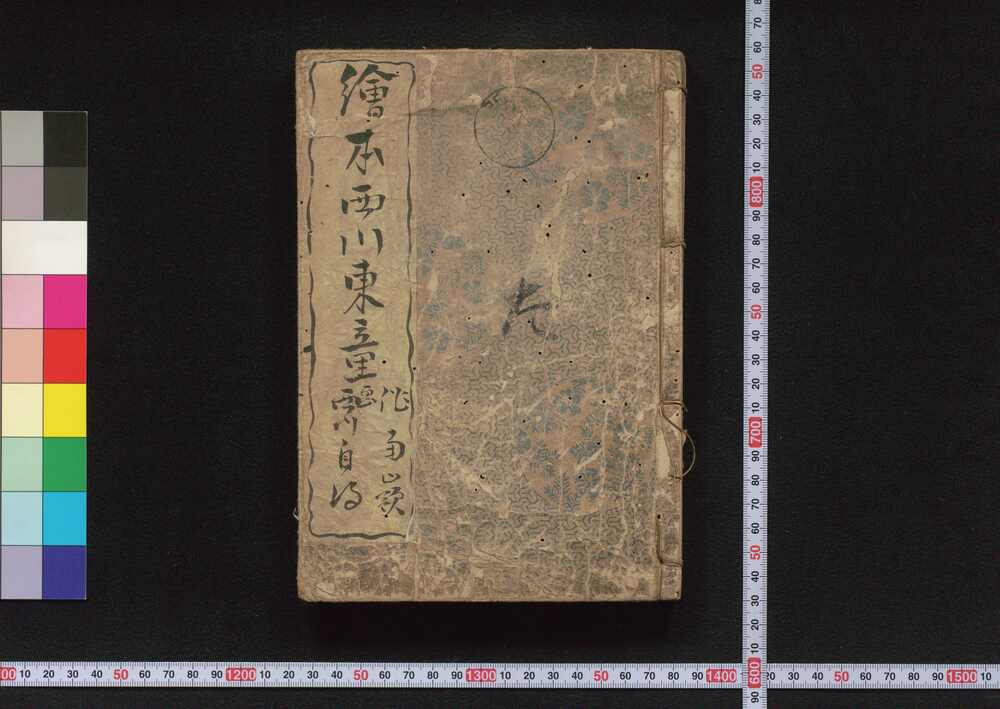 繪本西川東童
作 雨嶽
画 西川自得
00 10 20 30 40 50 60 70 80 90 1200 10 20 30 40 50 60 70 80 90 1300 10 20 30 40 50 60 70 80 90 1400 20 30 40 50 60 70 80 90 1500 10
70 60 50 40 30 20 10 800 90 80 70 60 50 40 30 20 10 700 90 80 70 60 50 40 30 20 10 600 90